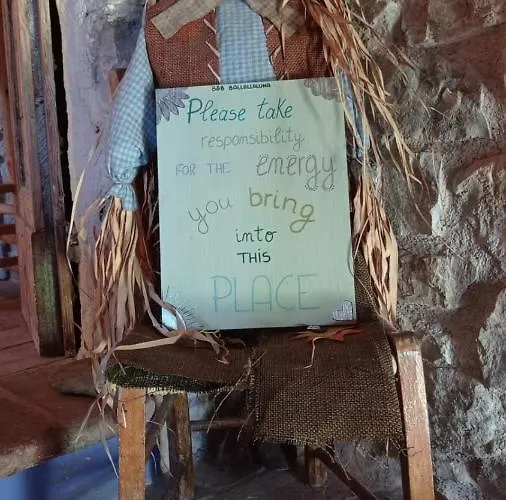 Please take
responsibility
FOR THE energy
you bring
into
THIS
PLACE